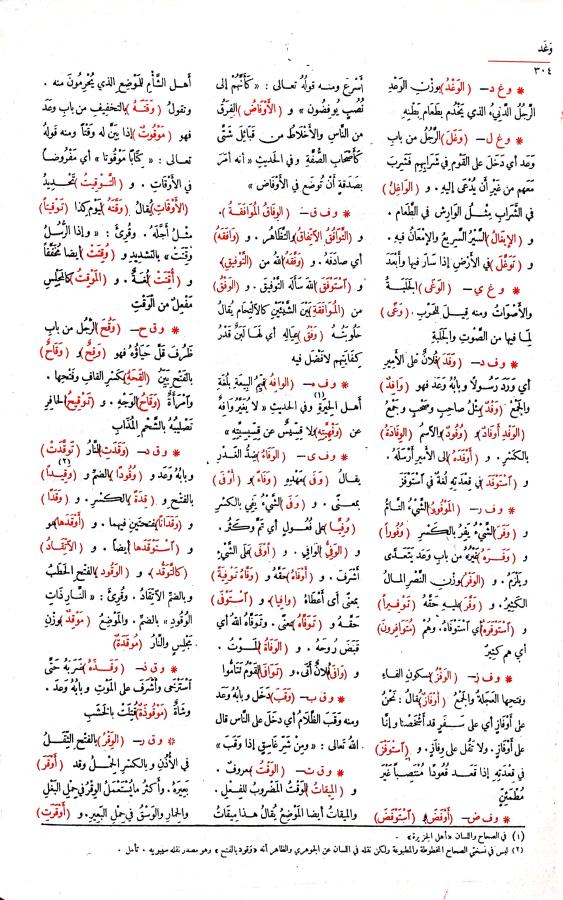 وَغَد
٣٠٤
* و غ د – (الوَغْدُ) بوزن الوَعْدِ
الرَّجُلُ الدَّنِيءُ الذي يَخْدُم بطَعام بَطْنِه
* و غ ل – (وَغَلَ) الرَّجُلُ من بابِ
وَعَد أي دَخَل على القَوم في شَرَابِهم فشَرِبَ
مَعَهم من غَيرِ أن يُدْعَى إليه . و (الوَاغِلُ)
في الشَّرَاب مِثْلُ الوَارِش في الطَّعام .
و (الإيغَالُ) السَّيْرُ السَّريعُ والإمْعَانُ فيه .
و (تَوَغَّلَ) في الأرْضِ إذا سَارَ فيها وأبْعَدَ
* و غ ي – (الوَغَى) الجَلَبةُ
والأصْواتُ ومنه قِيلَ للحَرْب (وَغًى)
لِما فيها من الصَّوْتِ والجَلَبة
* و ف د – (وَفَدَ) فُلانٌ على الأمِيرِ
أي وَرَدَ رَسُولاً وبابُهُ وَعَدَ فهو (وَافِدٌ)
والجَمْعُ (وَفْدٌ) مِثلُ صاحِبٍ وصَحْبٍ وجَمْعُ
(الوَفْدِ أوفَادٌ) و (وُفُودٌ) والاسمُ (الوِفَادَةُ)
بالكَسْر . و (أوفَدَه) إلى الأمِير أرْسَلَهُ .
و (اسْتَوْفَدَ) في قِعْدَتِهِ لُغَةٌ في اسْتَوْفَزَ
* و ف ر – (المَوْفُورُ) الشَّيْءُ التَّامُّ
و (وَفَرَ) الشَّيْءُ يَفِرُ بالكَسْر (وُفُوراً)
و (وَفَرَه) غيرُه من باب وَعَدَ يَتَعَدَّى
ويَلْزَمُ . و (الوَفْرُ) بوزن النَّصْرِ المالُ
الكَثِيرُ . و (وَفَّرَ) عَلَيهِ حَقَّهُ (تَوْفِيراً)
و (اسْتَوْفَرَه) أي اسْتَوْفَاهُ . وهُمْ (مُتَوَافِرُونَ)
أي هم كثيرٌ
* و ف ز – (الوَفْزُ) بسكونِ الفاءِ
وفتحِها العَجَلَةُ والجَمْعُ (أَوْفَازٌ) يقالُ : نَحْنُ
على أَوْفازٍ أي على سَفَرٍ قد أشْخَصْنَا وإنَّا
على أَوْفَازٍ . ولا تَقُل على وِفَازٍ . و (اسْتَوْفَزَ)
في قِعْدَتِهِ إذا قَعَدَ قُعُوداً مُنْتَصِباً غَيْرَ
مُطْمَئِنٍّ
* و ف ض – (أَوْفَضَ) و (اسْتَوْفَضَ)
أَسْرَعَ ومنه قولُه تعالى : «كَأَنَّهُمْ إلى
نُصُبٍ يوفِضُون» و (الأَوْفَاضُ) الفِرَقُ
من النَّاسِ والأخْلَاطُ من قَبَائِلَ شَتَّى
كأَصْحَابِ الصُّفَّةِ وفي الحَدِيث «أنه أمَرَ
بصَدَقةٍ أن تُوضَعَ في الأَوْفَاضِ»
* و ف ق – (الوِفَاقُ المُوَافَقَةُ) .
و (التَّوَافُقُ الاتِّفَاقُ) والتَّظَاهُر . و (وَافَقَهُ)
أي صادَفَهُ . و (وَفَّقَهُ) اللهُ من (التَّوفِيقِ) .
و (اسْتَوْفَقَ) اللهَ سَأَلَهُ التَّوفِيقَ . و (الوَفْقُ)
من (المُوَافَقَةِ) بَيْنَ الشَّيْئَين كالاْلتِحامِ يُقالُ
حَلُوبَتُهُ (وَفْقُ) عِيَالِه أي لَها لَبَنٌ قَدْرُ
كِفَايَتِهم لا فَضْلَ فيه
* و ف ه – (الوَافِهُ) قَيِّمُ البِيعَةِ بلُغَةِ
أهل الحِيرَةِ (١) وفي الحَدِيث «لا يُغَيَّرُ وَافِهٌ
عن (وَفْهِيَّتِهِ) ولا قِسِّيسٌ عن قِسِّيسِيَّتِه»
* و ف ي – (الوَفَاءُ) ضِدُّ الغَدْرِ
يقالُ (وَفَى) بعَهْدِهِ (وَفَاءً) و (أَوْفَى)
بمعنًى . و (وَفَى) الشَّيْءُ يَفِي بالكَسْرِ
(وُفِيًّا) على فُعُولٍ أي تَمَّ وكَثُرَ .
و (الوَفِيُّ) الوَافِي . و (أَوْفَى) على الشَّيْءِ
أَشْرَفَ . و (أَوْفَاهُ) حَقَّهُ و (وَفَّاهُ تَوْفِيَةً)
بمعنًى أي أعْطَاهُ (وَافِياً) . و (اسْتَوْفَى)
حَقَّهُ و (تَوَفَّاهُ) بمعنًى . وتَوَفَّاهُ اللهُ أي
قَبَضَ رُوحَهُ . و (الوَفَاةُ) المَوْتُ .
و (وَافَى) فُلانٌ أتَى . و (تَوَافَى) القَوْمُ تَتَامُّوا
* و ق ب – (وَقَبَ) دَخَلَ وبابُهُ وَعَدَ
ومنه وَقَبَ الظَّلَامُ أي دَخَلَ على النَّاسِ قال
اللهُ تعالى : «ومِنْ شَرِّ غَاسِقٍ إذا وَقَبَ»
* و ق ت – (الوَقْتُ) مَعروفٌ .
و (المِيقَاتُ) الوَقْتُ المَضْروبُ للفِعْلِ .
والمِيقَاتُ أيضا المَوْضِعُ يُقَالُ هذا مِيقَاتُ
أهل الشَّأْمِ للمَوْضِعِ الذي يُحْرِمُونَ منه .
وتقولُ (وَقَتَهُ) بالتخفيف من باب وَعَدَ
فهو (مَوْقُوتٌ) إذا بَيَّنَ له وَقْتاً ومنه قولُه
تعالى : «كِتَاباً مَوْقُوتا» أي مَفْرُوضاً
في الأَوْقاتِ . و (التَّوْقِيتُ) تَحْدِيدُ
(الأَوْقَاتِ) يُقَالُ (وَقَّتَهُ) لِيَوْمِ كذا (تَوْقِيتاً)
مِثْلُ أجَّلَهُ . وقُرِئَ : «وإذا الرُّسُلُ
وُقِّتَتْ» بالتشديدِ و (وُقِتَتْ) أيضا مُخَفَّفاً
و (أُقِّتَتْ) لُغَةٌ . و (المَوْقِتُ) كالمَجْلِسِ
مَفْعِلٌ من الوَقْتِ
* و ق ح – (وَقُحَ) الرَّجُلُ من باب
ظَرُفَ قَلَّ حَيَاؤُه فهو (وَقِحٌ) و (وَقَاحٌ)
بالفَتْح بَيِّنُ (القِحَةِ) بكَسْرِ القافِ وفَتْحِها .
وامْرَأَةٌ (وَقَاحُ) الوَجْهِ . و (تَوْقِيحُ) الحافِرِ
تَصْلِيبُهُ بالشَّحْمِ المُذَابِ
* و ق د – (وَقَدَتِ) النَّارُ (تَوَقَّدَتْ)
وبابُهُ وَعَدَ و (وُقُوداً) بالضمِّ و (وَقِيداً) (٢)
بالفتحِ و (قِدَةً) بالكسْرِ . و (وَقَداً)
و (وَقَدَاناً) بفتحتين فيهما . و (أَوْقَدَها) هو
و (اسْتَوْقَدَها) أيضاً . و (الاتِّقَادُ)
(كالتَّوَقُّدِ) . و (الوَقُودُ) بالفتحِ الحَطَبُ
وبالضمِّ الاتِّقَادُ . وقُرِئَ : «النَّارِ ذَاتِ
الوُقُودِ» بالضم . والمَوْضِعُ (مَوْقِدٌ) بوَزْنِ
مَجْلِسٍ والنَّارُ (مُوقَدَةٌ)
* و ق ذ – (وَقَذَهُ) ضَرَبَهُ حَتَّى
اسْتَرْخَى وأشْرَفَ على المَوْتِ وبابُهُ وَعَدَ .
وشَاةٌ (مَوْقُوذَةٌ) قُتِلَتْ بالخَشَبِ
* و ق ر – (الوَقْرُ) بالفتحِ الثِّقَلُ
في الأُذُنِ وبالكسرِ الحِمْلُ وقد (أَوْقَرَ)
بَعِيرَهُ . وأَكْثَرُ ما يُسْتَعمَلُ الوِقْرُ في حِمْلِ البَغْلِ
والحِمارِ والوَسْقُ في حِمْلِ البَعِيرِ . و (أَوْقَرَتِ)
(١) في الصحاح واللسان «أهل الجزيرة» .
(٢) ليس في نسختي الصحاح المخطوطة والمطبوعة ولكن نقله في اللسان عن الجوهري والظاهر أنه «وَقوداً بالفتح» وهو مصدر نقله سيبويه . تأمل .